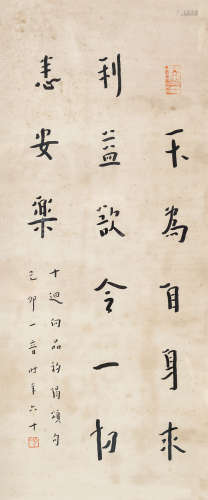 不為自身求
利益欲令一切
悉安樂
十迴向品初偈頌句
己卯一音時年六十